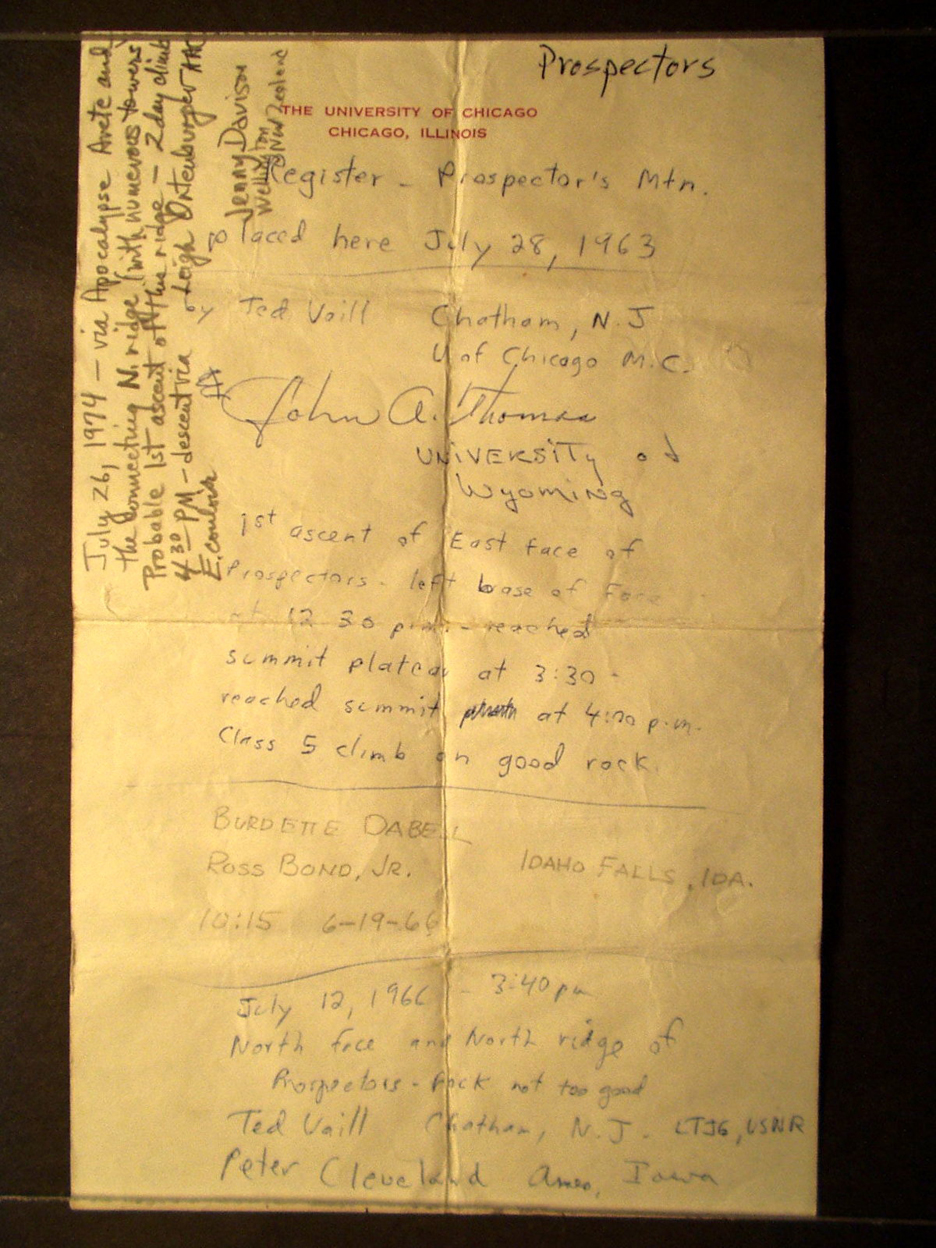 Prospectors
THE UNIVERSITY OF CHICAGO
CHICAGO, ILLINOIS
Register - Prospector's Mtn.
placed here July 28, 1963
by Ted Vaill Chatham, N.J.
U of Chicago M.C.
& John A. Thomas
UNIVERSITY of
Wyoming
1st ascent of East face of
Prospectors - left base of face
at 12 30 p.m. - reached
summit plateau at 3:30 -
reached summit at 4:00 p.m.
Class 5 climb on good rock.
BURDETTE DABELL
ROSS BOND, JR. IDAHO FALLS, IDA.
10:15 6-19-66
July 12, 1966 - 3:40 pm
North face and North ridge of
Prospectors - Rock not too good
Ted Vaill Chatham, N.J. LTJG, USNR
Peter Cleveland Ames, Iowa
July 26, 1974 - via Apocalypse Arete and
the connecting N. ridge (with numerous towers)
Probable 1st ascent of this ridge - 2 day climb
4 30 PM - descent via Leigh Ortenburger AAC
E. couloir
Jerry Davison
Wellington
New Zealand